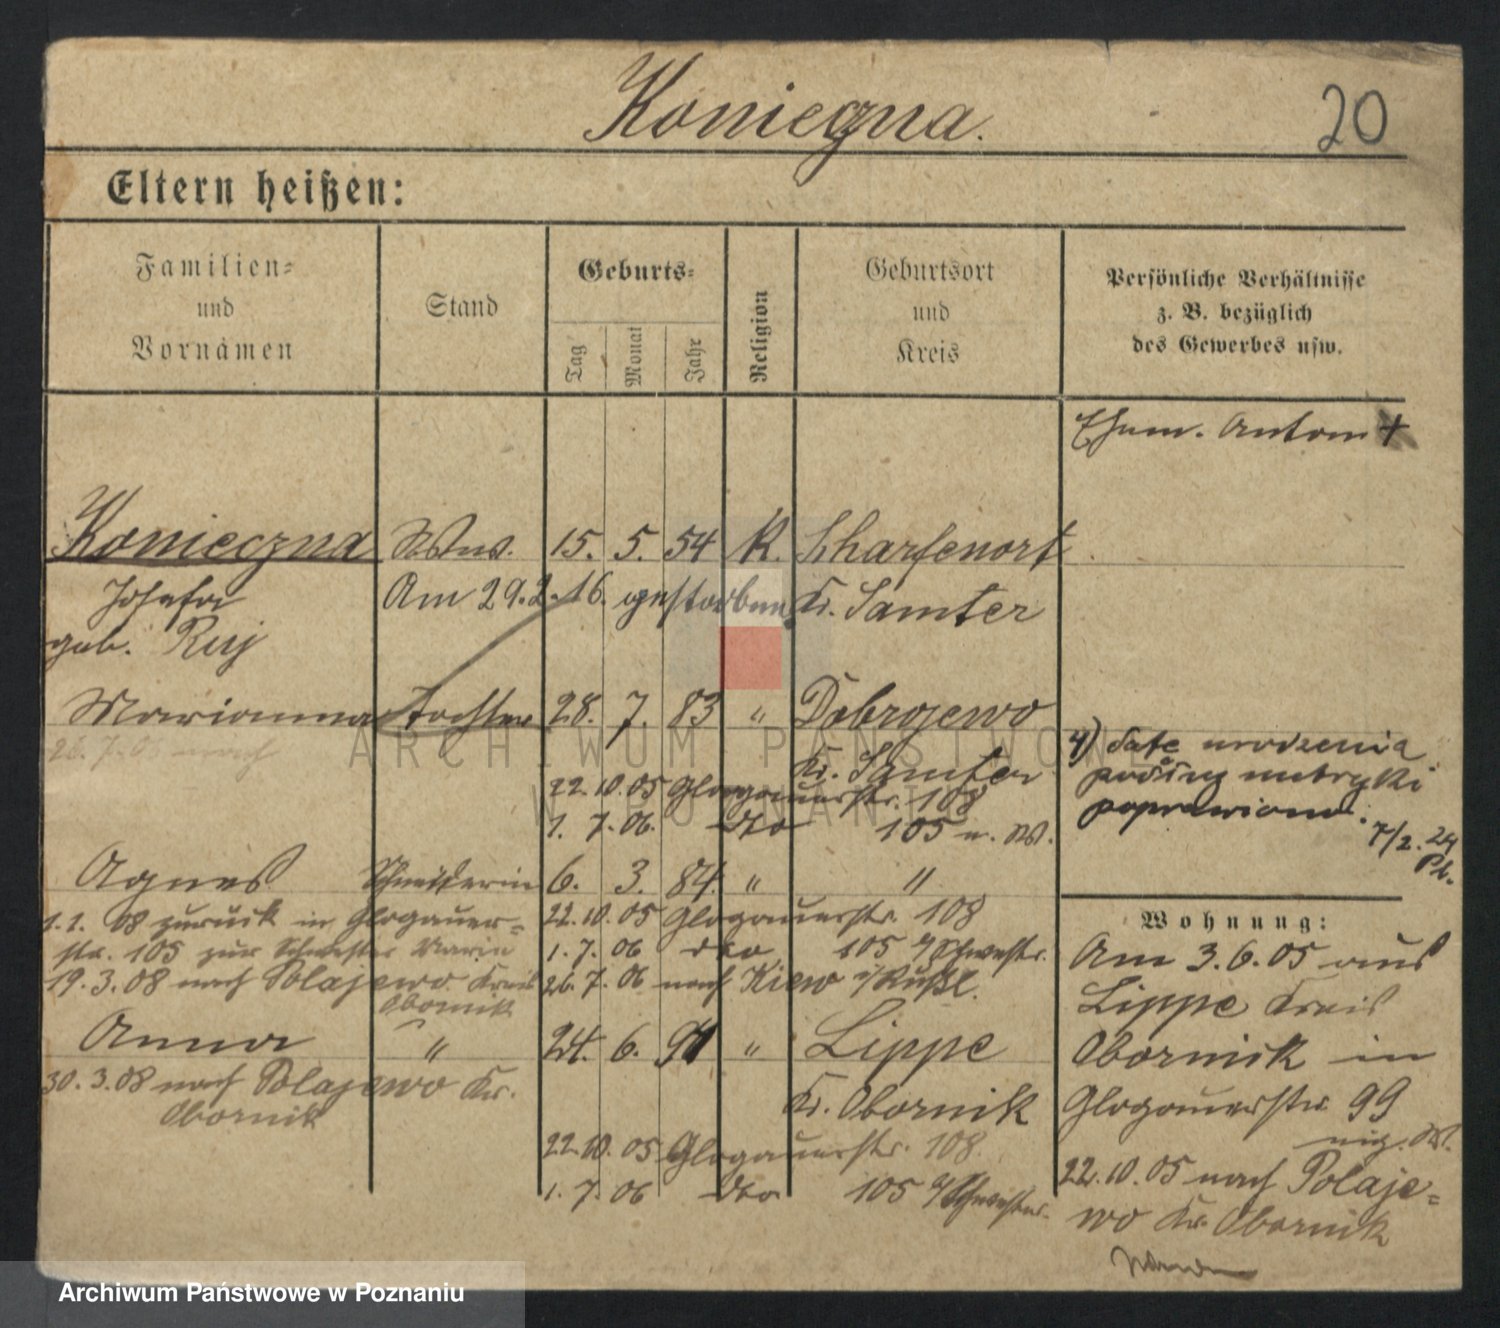 Konieczna.
20
Eltern heißen:
Familien-
und
Vornamen
Stand
Geburts-
Tag
Monat
Jahr
Religion
Geburtsort
und
Kreis
Persönliche Verhältnisse
z. B. bezüglich
des Gewerbes usw.
Ehem. Anton +
Konieczna Ww. 15. 5. 54 K. Scharfenort
Josefa Am 29.2.16. gestorben Kr. Samter
geb. Ruj
Marianna Tochter 28. 7. 83 " Dobrojewo
26. 7. 06 nach
Kr. Samter
22. 10. 05 Glogauerstr. 108
1. 7. 06. dto 105 n. W.
4) datę urodzenia
podług metryki
poprawiono.
7/2. 24
Agnes Schneiderin 6. 3. 84. " "
1. 1. 08 zurück in Glogauer-
str. 105 zur Schwester Maria
19. 3. 08 nach Polajewo Kreis
Obornik
22. 10. 05 Glogauerstr. 108
1. 7. 06 dto 105 b/Schwestr.
26. 7. 06 nach Kiew i/Rußl.
Anna " 24. 6. 91 " Lippe
30. 3. 08 nach Polajewo Kr.
Obornik
Kr. Obornik
22. 10. 05 Glogauerstr. 108.
1. 7. 06 dto 105 b/Schwester.
Wohnung:
Am 3. 6. 05 aus
Lippe Kreis
Obornik in
Glogauerstr 99
eig. W.
22. 10. 05 nach Polaje-
wo Kr. Obornik
ARCHIWUM PAŃSTWOWE
W POZNANIU
Archiwum Państwowe w Poznaniu